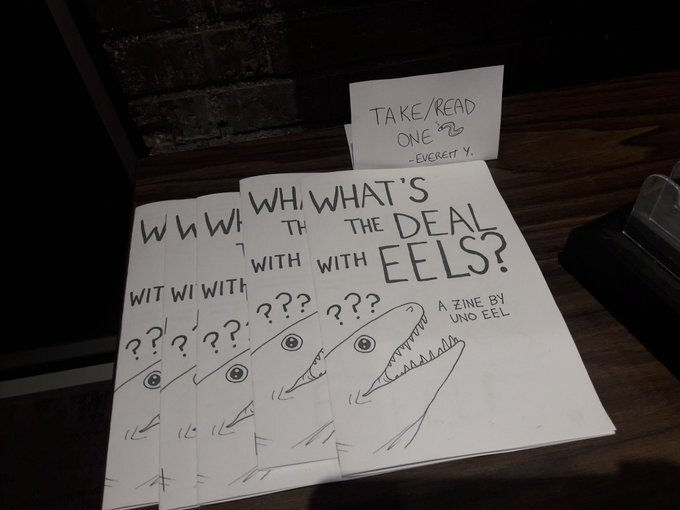 TAKE/READ
ONE
-EVERETT Y.
WHAT'S
THE DEAL
WITH EELS?
???
A ZINE BY
UNO EEL
WH
TH
WITH
???
WH
T
WITH
???
W
WI
?
W
WIT
??